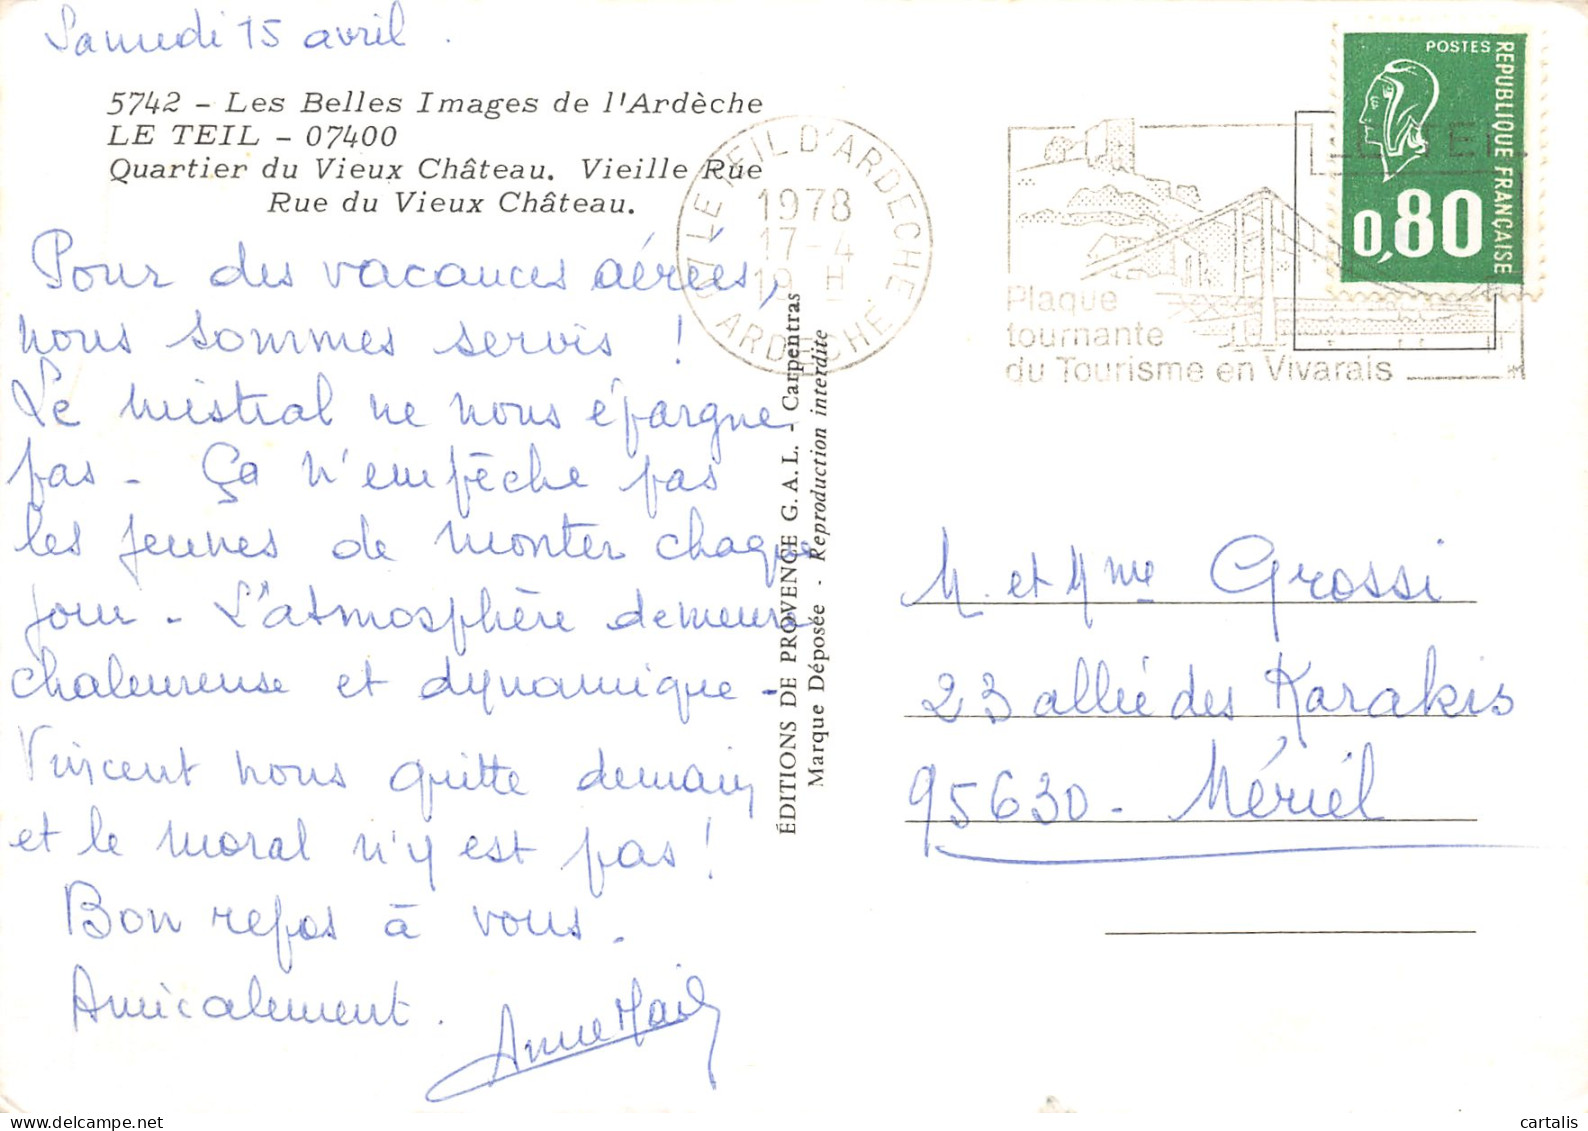 Samedi 15 avril.
5742 - Les Belles Images de l'Ardèche
LE TEIL - 07400
Quartier du Vieux Château. Vieille Rue
Rue du Vieux Château.
Pour des vacances aérées,
nous sommes servis !
Le mistral ne nous épargne
pas - Ça n'empêche pas
les jeunes de monter chaque
jour - L'atmosphère demeure
chaleureuse et dynamique -
Vincent nous quitte demain
et le moral n'y est pas !
Bon repos à vous.
Amicalement.
Anne
ÉDITIONS DE PROVENCE G.A.L. - Carpentras
Marque Déposée - Reproduction interdite
07 LE TEIL D'ARDECHE
1978
17-4
19 H
ARDECHE
LE TEIL
Plaque
tournante
du Tourisme en Vivarais
POSTES
REPUBLIQUE FRANÇAISE
0,80
M. et Mme Grossi
23 allée des Karakis
95630 - Mériel
cartalis